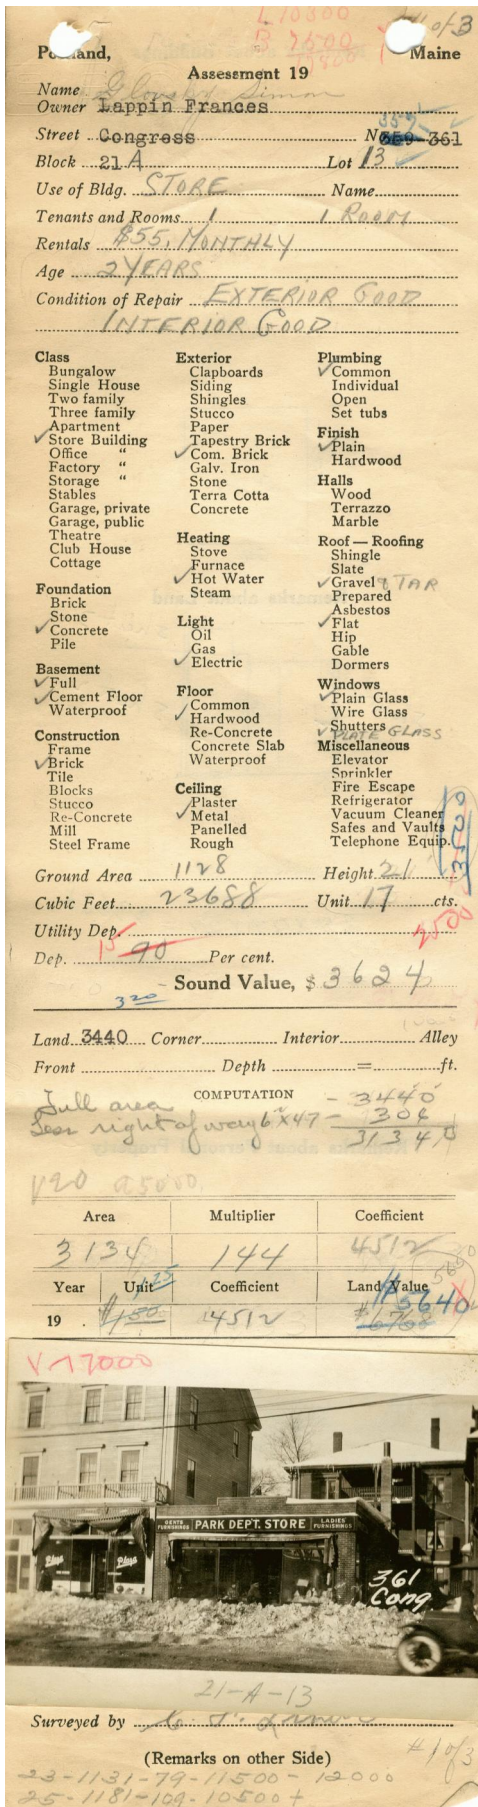 L 10800
B 7500
# 1 of 3
Portland, Maine
Assessment 19
Name Glovsky Simon
Owner Lappin Frances
357
Street Congress No 359-361
Block 21 A Lot 13
Use of Bldg. STORE Name
Tenants and Rooms 1 1 ROOM
Rentals $55, MONTHLY
Age 2 YEARS
Condition of Repair EXTERIOR GOOD
INTERIOR GOOD
Class
Bungalow
Single House
Two family
Three family
Apartment
✓ Store Building
Office "
Factory "
Storage "
Stables
Garage, private
Garage, public
Theatre
Club House
Cottage
Foundation
Brick
Stone
✓ Concrete
Pile
Basement
✓ Full
✓ Cement Floor
Waterproof
Construction
Frame
✓ Brick
Tile
Blocks
Stucco
Re-Concrete
Mill
Steel Frame
Exterior
Clapboards
Siding
Shingles
Stucco
Paper
Tapestry Brick
✓ Com. Brick
Galv. Iron
Stone
Terra Cotta
Concrete
Heating
Stove
Furnace
✓ Hot Water
Steam
Light
Oil
Gas
✓ Electric
Floor
Common
✓ Hardwood
Re-Concrete
Concrete Slab
Waterproof
Ceiling
Plaster
✓ Metal
Panelled
Rough
Plumbing
✓ Common
Individual
Open
Set tubs
Finish
✓ Plain
Hardwood
Halls
Wood
Terrazzo
Marble
Roof — Roofing
Shingle
Slate
✓ Gravel & TAR
Prepared
Asbestos
✓ Flat
Hip
Gable
Dormers
Windows
✓ Plain Glass
Wire Glass
Shutters
✓ PLATE GLASS
Miscellaneous
Elevator
Sprinkler
Fire Escape
Refrigerator
Vacuum Cleaner
Safes and Vaults
Telephone Equip.
3500
Ground Area 1128 Height 21
Cubic Feet 23688 Unit 17 cts.
2500
Utility Dep.
Dep. 15 90 Per cent.
Sound Value, $ 3624
320
Land 3440 Corner Interior Alley
Front Depth = ft.
COMPUTATION
Full area - 3440
Less right of way 6 x 47 - 306
3134
V20 a5000
Area Multiplier Coefficient
3134 144 4512
5650
Year Unit Coefficient Land Value
125 $5640
19 $1.50 4512 $6768
V-17000
GENTS FURNISHINGS PARK DEPT. STORE LADIES FURNISHINGS
361
Cong.
21-A-13
Surveyed by
(Remarks on other Side)
# 1 of 3
23-1131-79-11500-12000
25-1181-109-10500+